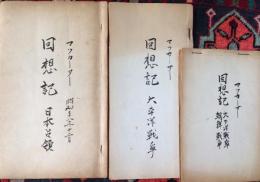 マッカーサー
回想記
日本占領
マッカーサー
回想記
太平洋戦争
マッカーサー
回想記
太平洋戦争
朝鮮戦争